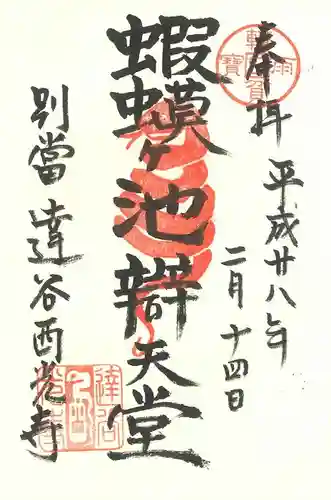 奉拝
平成廿八年
二月十四日
蝦蟆ヶ池辯天堂
別當 達谷西光寺